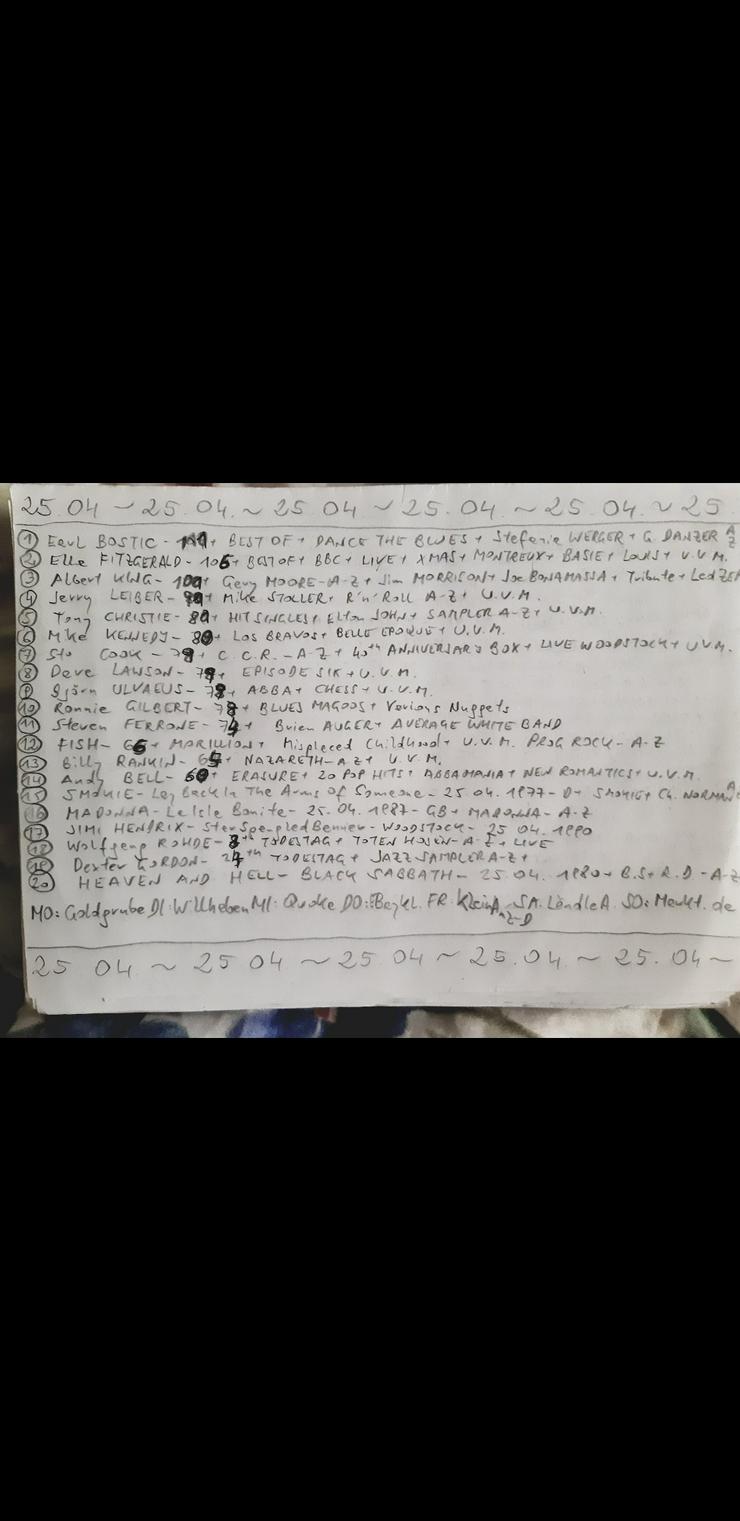 25.04 ~ 25.04. ~ 25.04 ~ 25.04. ~ 25.04. ~ 25.
① Earl BOSTIC - + BEST OF + DANCE THE BLUES + Stefanie WERGER + G. DANZER A/Z
② Ella FITZGERALD - 106 + BEST OF + BBC + LIVE + XMAS + MONTREUX + BASIE + LOUIS + U.V.M.
③ Albert KING - + Gary MOORE - A-Z + Jim MORRISON + Joe BONAMASSA + Tribute + Led ZE
④ Jerry LEIBER - + Mike STOLLER + R'n'Roll A-Z + U.V.M.
⑤ Tony CHRISTIE - + HIT SINGLES + Elton JOHN + SAMPLER A-Z + U.V.M.
⑥ Mike KENNEDY - + LOS BRAVOS + BELLE EPOQUE + U.V.M.
⑦ Stu COOK - + C.C.R. - A-Z + 40th ANNIVERSARY BOX + LIVE WOODSTOCK + U.V.M.
⑧ Dave LAWSON - + EPISODE SIX + U.V.M.
⑨ Björn ULVAEUS - + ABBA + CHESS + U.V.M.
⑩ Ronnie GILBERT - + BLUES MAGOOS + Various Nuggets
⑪ Steven FERRONE - + Brian AUGER + AVERAGE WHITE BAND
⑫ FISH - 66 + MARILLION + Misplaced Childhood + U.V.M. PROG ROCK - A-Z
⑬ Billy RANKIN - + NAZARETH - A-Z + U.V.M.
⑭ Andy BELL - 60 + ERASURE + 20 POP HITS + ABBAMANIA + NEW ROMANTICS + U.V.M.
⑮ SMOKIE - Lay Back In The Arms Of Someone - 25.04.1977 - D + SMOKIE + Ch. NORMAN A
⑯ MADONNA - La Isla Bonita - 25.04.1987 - GB + MADONNA - A-Z
⑰ JIMI HENDRIX - Star Spangled Banner - WOODSTOCK - 25.04.1990
⑱ Wolfgang ROHDE - 8th TODESTAG + TOTEN HOSEN - A-Z + LIVE
⑲ Dexter GORDON - TODESTAG + JAZZ SAMPLER A-Z +
⑳ HEAVEN AND HELL - BLACK SABBATH - 25.04.1980 + B.S + R.D - A-Z
MO: Goldgrube DI: Willhaben MI: Quoka DO: FR: KleinA. SA: LändleA. SO: Markt.de
A-Z-D
25 04 ~ 25 04 ~ 25.04 ~ 25.04. ~ 25.04 ~